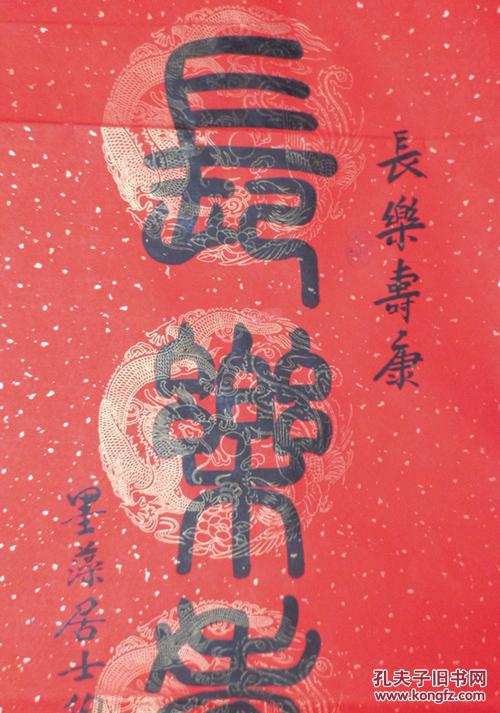 長樂壽康
長樂壽
墨藻居士
孔夫子旧书网
www.kongfz.com